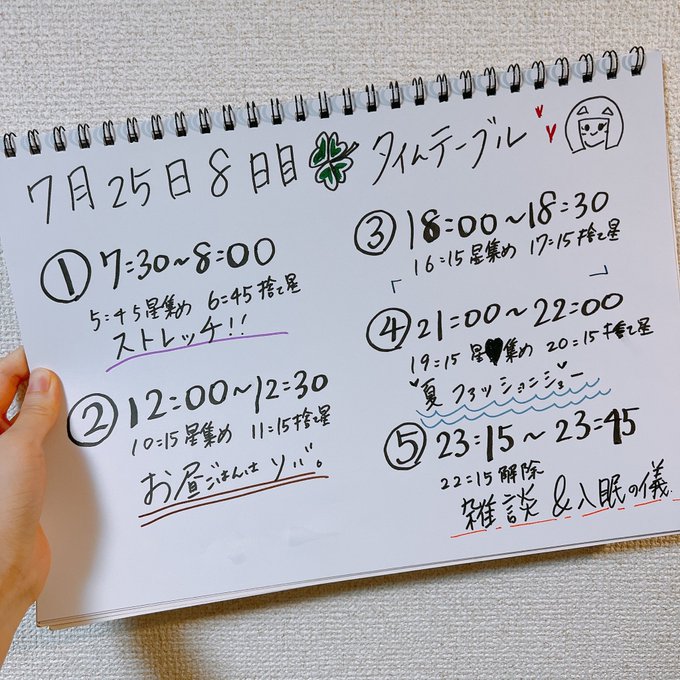 7月25日8日目 タイムテーブル
① 7:30~8:00
5:45星集め 6:45捨て星
ストレッチ!!
② 12:00~12:30
10:15星集め 11:15捨て星
お昼ごはんは ソバ。
③ 18:00~18:30
16:15星集め 17:15捨て星
「 」
④ 21:00~22:00
19:15星集め 20:15捨て星
夏ファッションショー
⑤ 23:15~23:45
22:15解除
雑談&入眠の儀